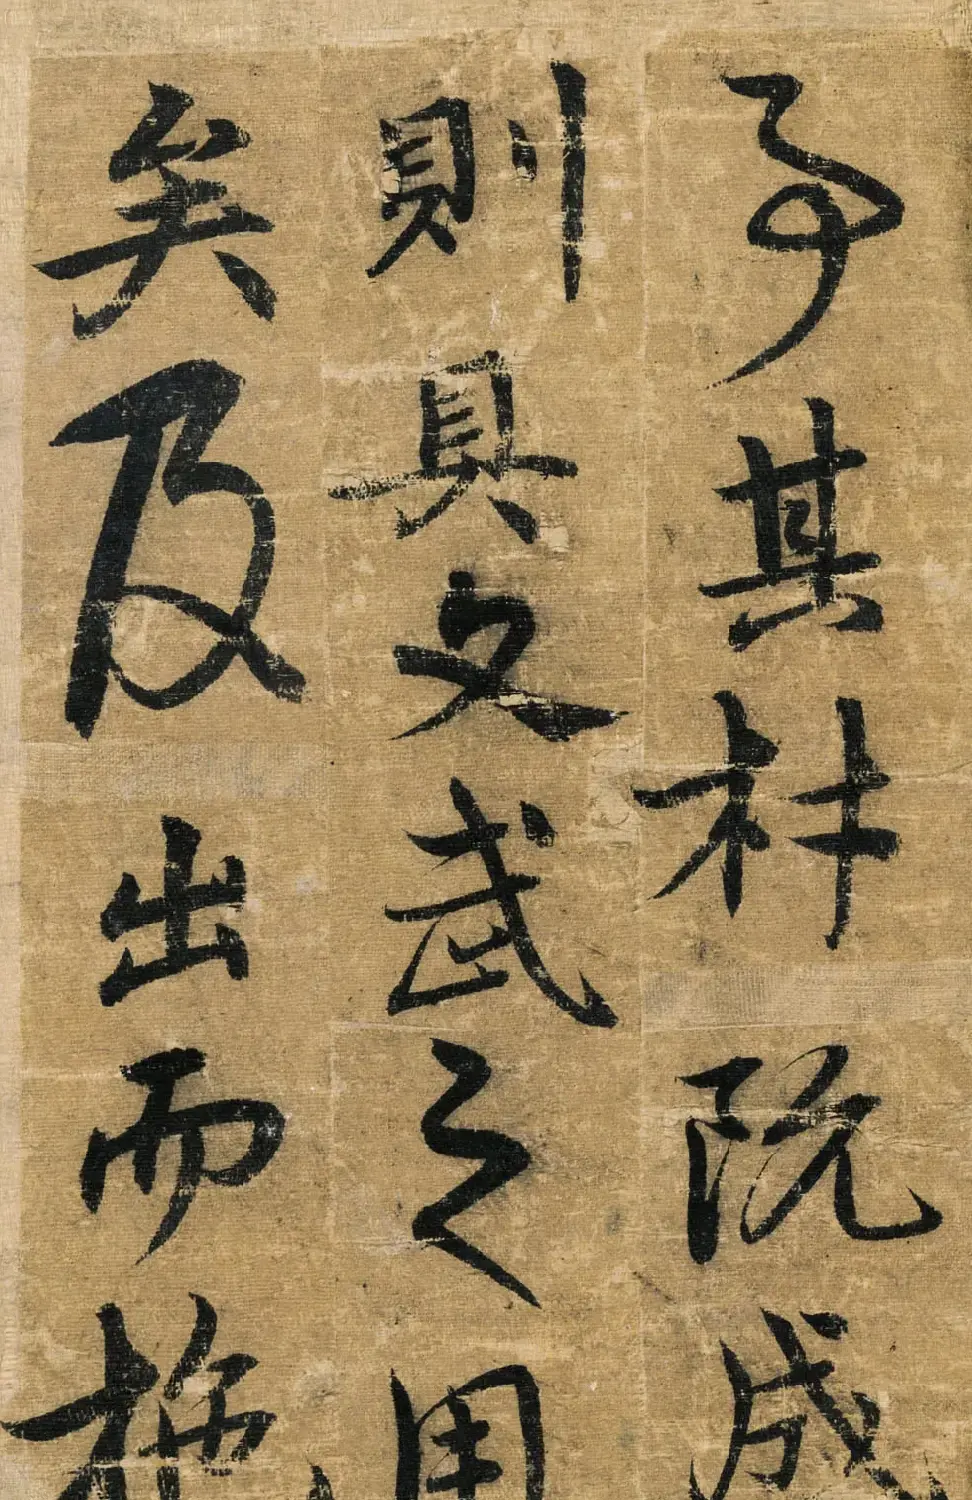 子其材阮成
則具文武之用
矣及出而施